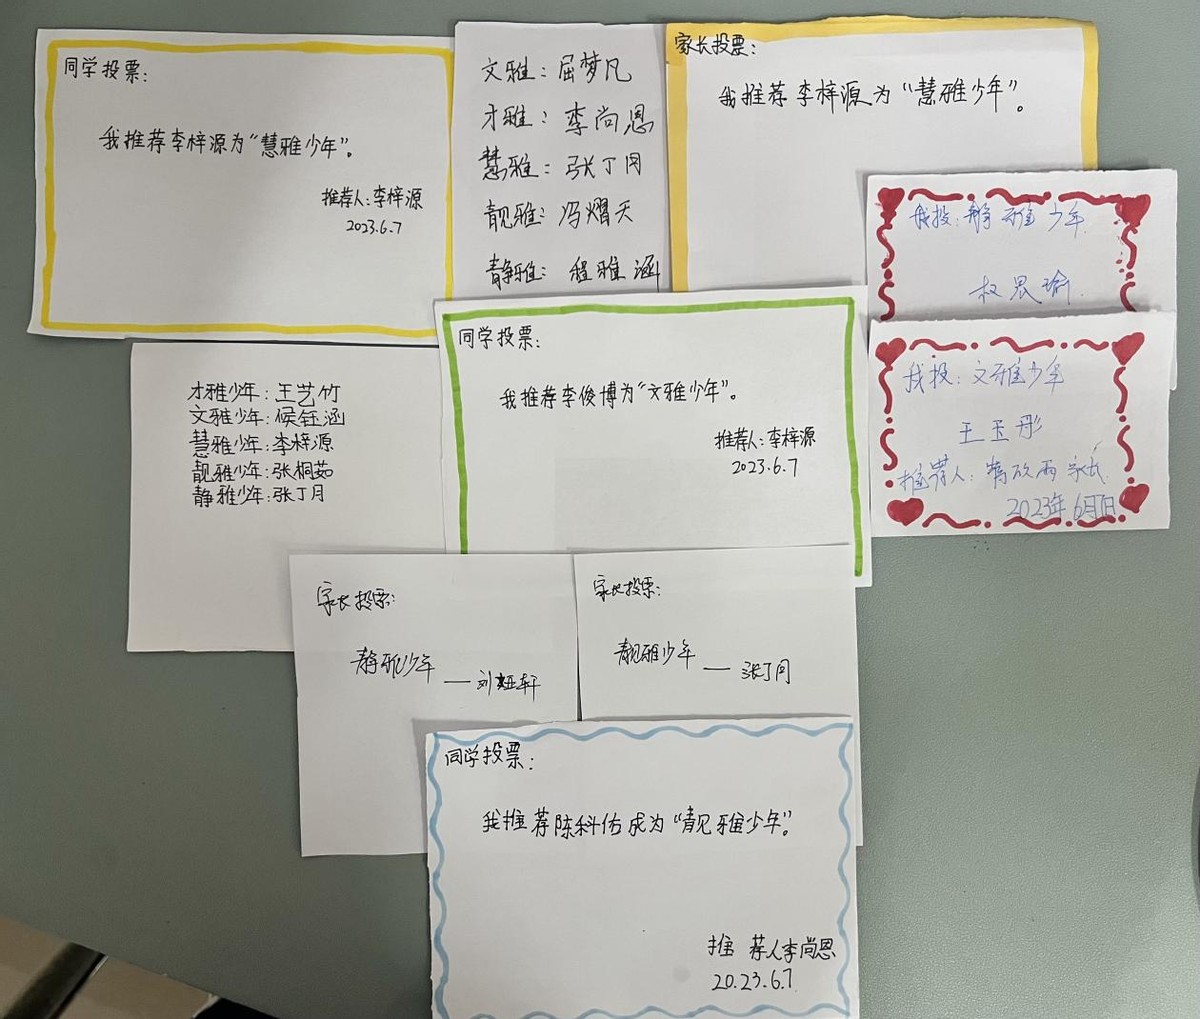 同学投票：
我推荐李梓源为“慧雅少年”。
推荐人：李梓源
2023.6.7
文雅：屈梦凡
才雅：李尚恩
慧雅：张丁月
靓雅：冯熠天
静雅：程雅涵
家长投票：
我推荐李梓源为“慧雅少年”。
我投：静雅少年
权思瑜
我投：文雅少年
王玉彤
推荐人：家长
2023年6月7日
才雅少年：王艺竹
文雅少年：侯钰涵
慧雅少年：李梓源
靓雅少年：张桐茹
静雅少年：张丁月
同学投票：
我推荐李俊博为“文雅少年”。
推荐人：李梓源
2023.6.7
家长投票：
静雅少年
——刘娅轩
家长投票：
靓雅少年
——张丁月
同学投票：
我推荐陈科佑成为“靓雅少年”。
推 荐人李尚恩
20.23.6.7